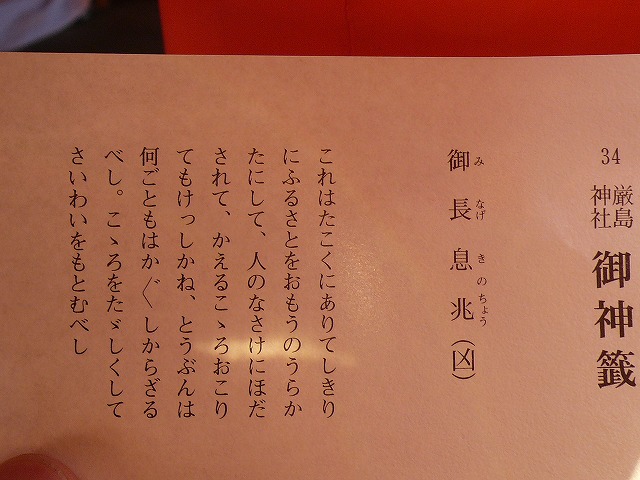 34 厳島神社 御神籤
御長息兆（凶）
みなげきのちょう
これはたこくにありてしきり
にふるさとをおもうのうらか
たにして、人のなさけにほだ
されて、かえるこゝろおこり
てもけっしかね、とうぶんは
何ごともはか〴〵しからざる
べし。こゝろをたゞしくして
さいわいをもとむべし